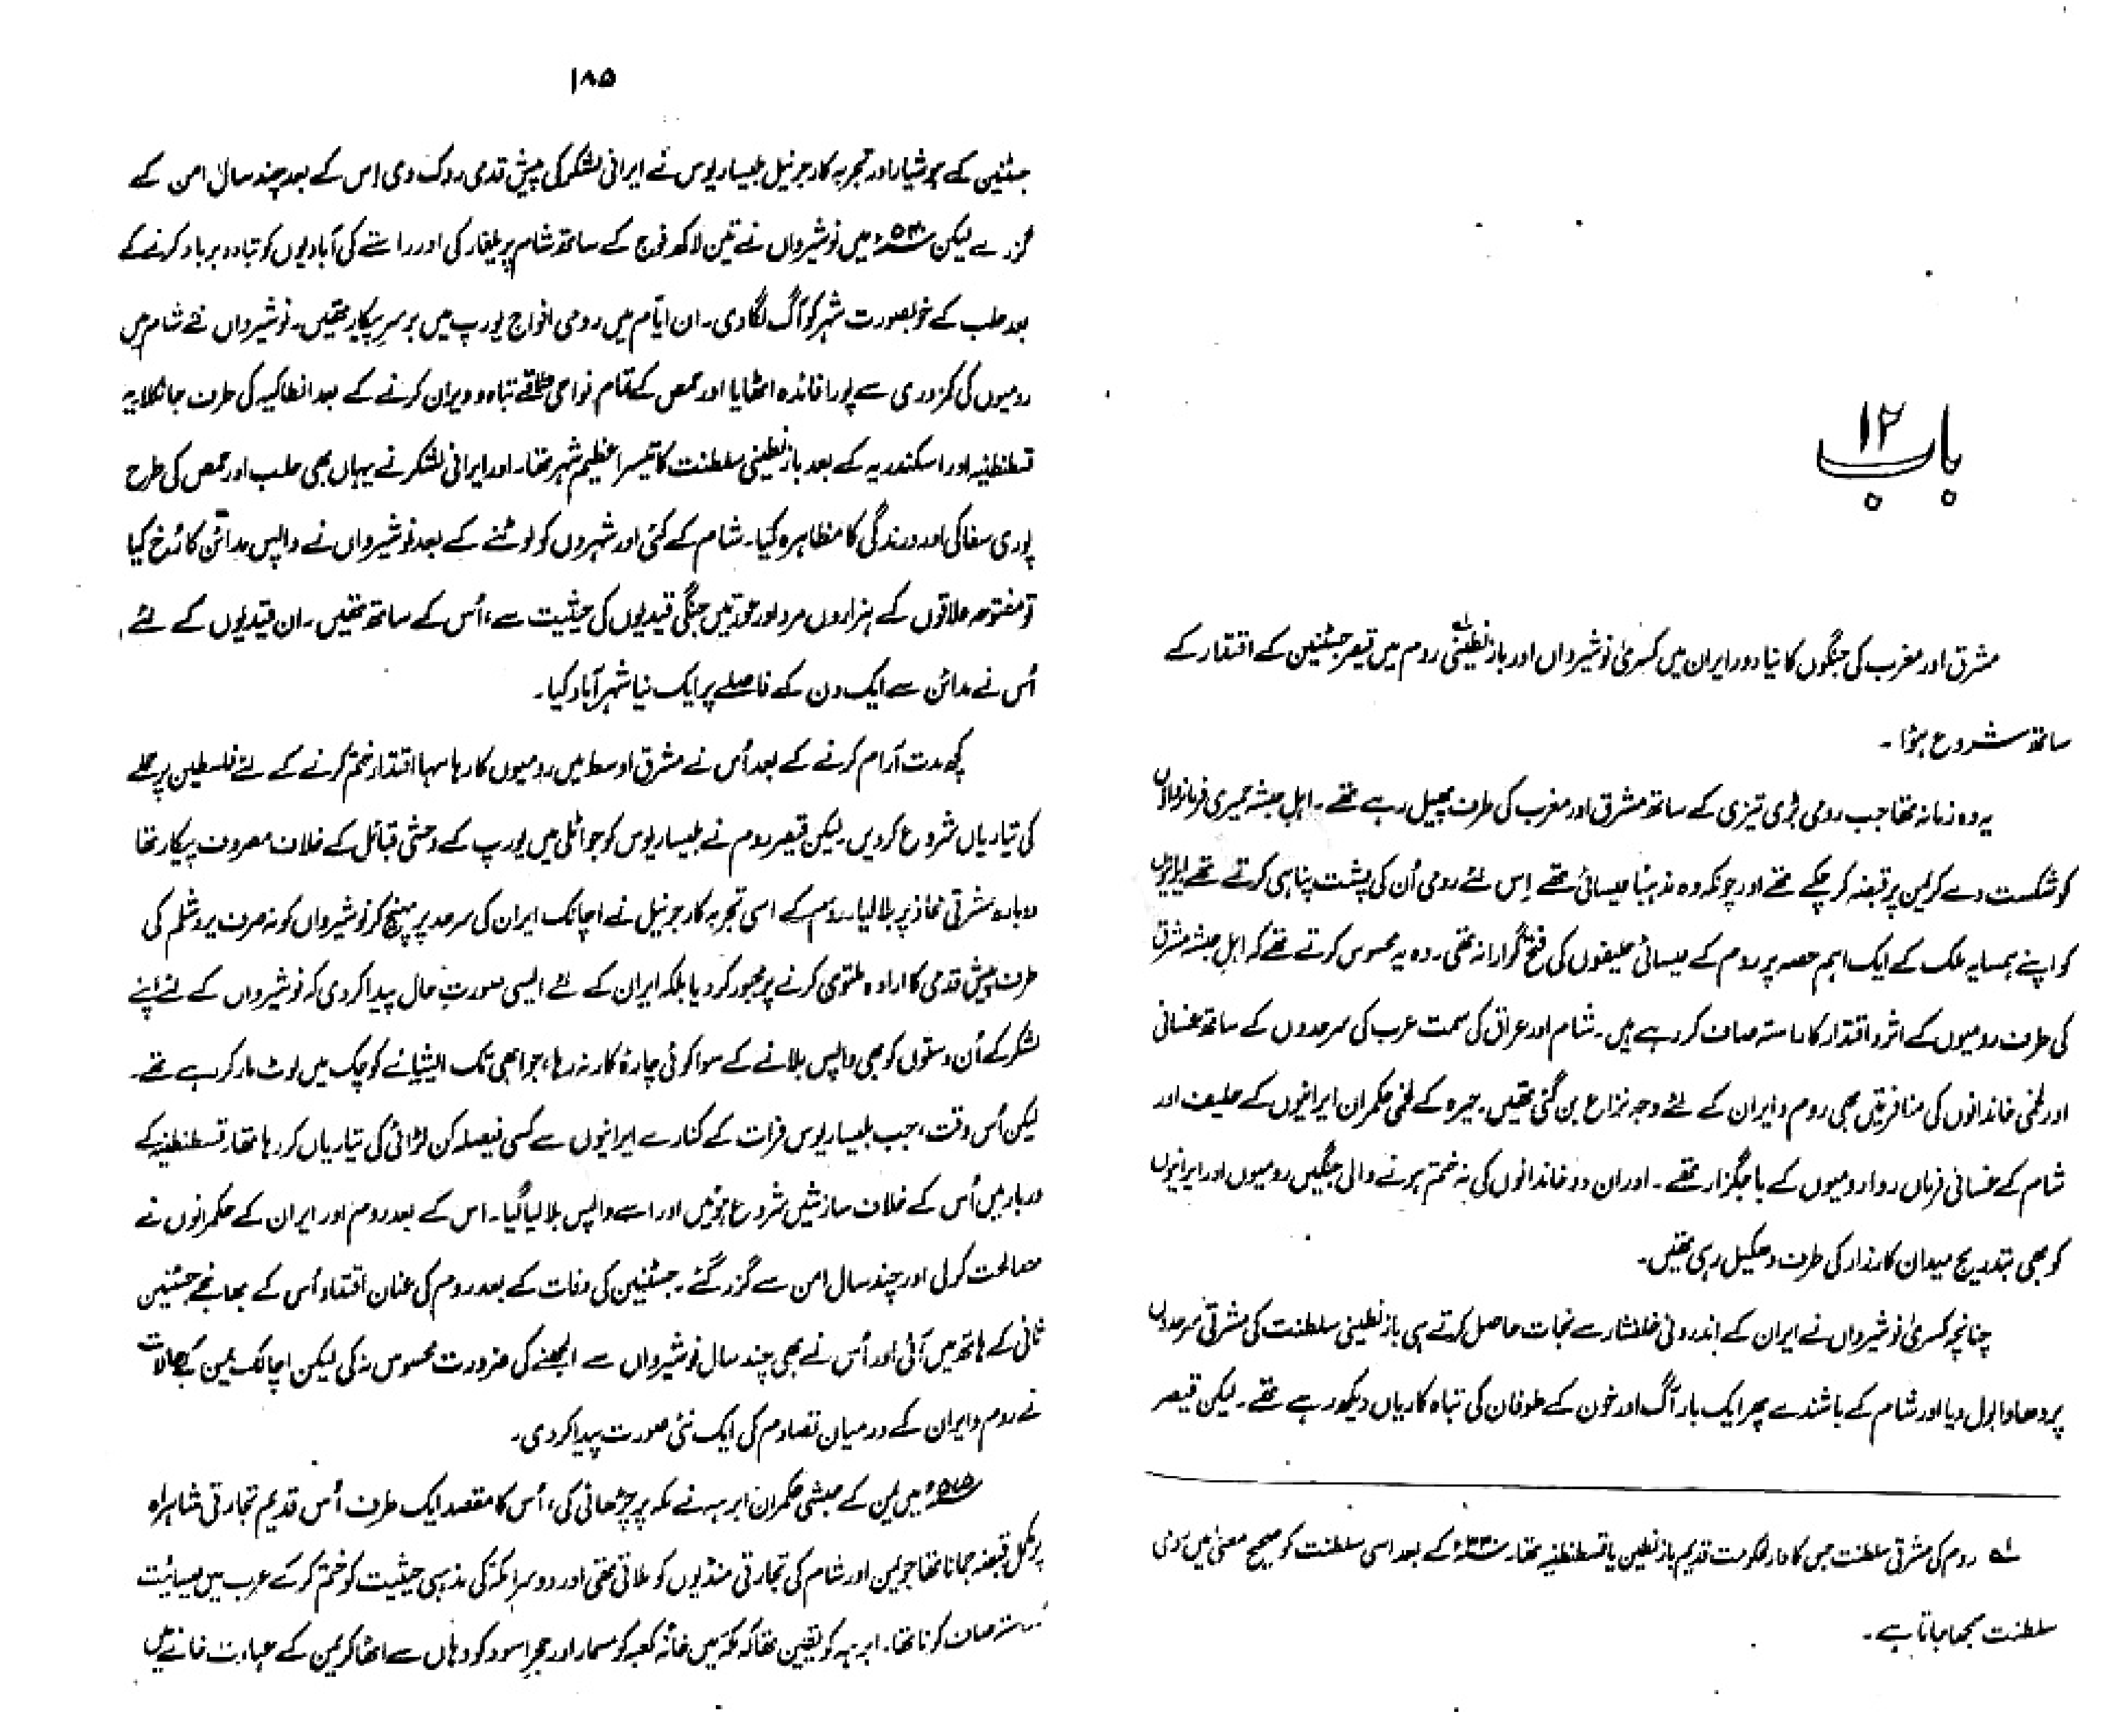 باب ۱۲
مشرق اور مغرب کی جنگوں کا نیا دور ایران میں کسریٰ نوشیرواں اور بازنطینی؎۱ روم میں قیصر جسٹنین کے اقتدار کے
ساتھ شروع ہؤا ۔
یہ وہ زمانہ تھا جب رومی بڑی تیزی کے ساتھ مشرق اور مغرب کی طرف پھیل رہے تھے ۔ اہلِ حبشہ حمیری فرمانرواؤں
کو شکست دے کر یمن پر قبضہ کر چکے تھے اور چونکہ وہ مذہبنا عیسائی تھے اِس لئے رومی اُن کی پشت پناہی کرتے تھے ایرانیوں
کو اپنے ہمسایہ ملک کے ایک اہم حصہ پر روم کے عیسائی حلیفوں کی فتح گوارا نہ تھی ۔ وہ یہ محسوس کرتے تھے کہ اہلِ حبشہ مشرق
کی طرف رومیوں کے اثر و اقتدار کا راستہ صاف کر رہے ہیں ۔ شام اور عراق کی سمت عرب کی سرحدوں کے ساتھ غسانی
اور لخمی خاندانوں کی منافرتیں بھی روم و ایران کے لئے وجہ نزاع بن گئی تھیں ۔ حیرہ کے لخمی حکمران ایرانیوں کے حلیف اور
شام کے غسانی فرماں روا رومیوں کے باجگزار تھے ۔ اور ان دو خاندانوں کی نہ ختم ہونے والی جنگیں رومیوں اور ایرانیوں
کو بھی بتدریج میدان کارزار کی طرف دھکیل رہی تھیں ۔
چنانچہ کسریٰ نوشیرواں نے ایران کے اندرونی خلفشار سے نجات حاصل کرتے ہی بازنطینی سلطنت کی مشرقی سرحدوں
پر دھاوا بول دیا اور شام کے باشندے پھر ایک بار آگ اور خون کے طوفان کی تباہ کاریاں دیکھ رہے تھے ۔ لیکن قیصر
؎۱ روم کی مشرقی سلطنت جس کا دارالحکومت قدیم بازنطین یا قسطنطنیہ تھا۔ ۳۳۰ء کے بعد اسی سلطنت کو صحیح معنیٰ میں رومی
سلطنت سمجھا جاتا ہے ۔
۱۸۵
جسٹنین کے ہوشیار اور تجربہ کار جرنیل بلیساریوس نے ایرانی لشکر کی پیش قدمی روک دی اس کے بعد چند سال امن کے
گزرے لیکن ۵۴۰ء میں نوشیرواں نے تین لاکھ فوج کے ساتھ شام پر یلغار کی اور راستے کی آبادیوں کو تباہ و برباد کرنے کے
بعد حلب کے خوبصورت شہر کو آگ لگا دی ۔ ان ایّام میں رومی افواج یورپ میں برسرِ پیکار تھیں ۔ نوشیرواں نے شام میں
رومیوں کی کمزوری سے پورا فائدہ اٹھایا اور حمص کے تمام نواحی علاقے تباہ و ویران کرنے کے بعد انطاکیہ کی طرف جا نکلا یہ
قسطنطنیہ اور اسکندریہ کے بعد بازنطینی سلطنت کا تیسرا عظیم شہر تھا۔ اور ایرانی لشکر نے یہاں بھی حلب اور حمص کی طرح
پوری سفاکی اور درندگی کا مظاہرہ کیا ۔ شام کے کئی اور شہروں کو لوٹنے کے بعد نوشیرواں نے واپس مدائن کا رُخ کیا
تو مفتوحہ علاقوں کے ہزاروں مرد اور عورتیں جنگی قیدیوں کی حیثیت سے، اُس کے ساتھ تھیں ۔ ان قیدیوں کے لئے
اُس نے مدائن سے ایک دن کے فاصلے پر ایک نیا شہر آباد کیا ۔
کچھ مدت آرام کرنے کے بعد اُس نے مشرق اوسط میں رومیوں کا رہا سہا اقتدار ختم کرنے کے لئے فلسطین پر حملے
کی تیاریاں شروع کر دیں ۔ لیکن قیصرِ روم نے بلیساریوس کو جو اٹلی میں یورپ کے وحشی قبائل کے خلاف مصروفِ پیکار تھا
دوبارہ مشرقی محاذ پر بلا لیا ۔ روم کے اسی تجربہ کار جرنیل نے اچانک ایران کی سرحد پر پہنچ کر نوشیرواں کو نہ صرف یروشلم کی
طرف پیش قدمی کا ارادہ ملتوی کرنے پر مجبور کر دیا بلکہ ایران کے لئے ایسی صورتِ حال پیدا کر دی کہ نوشیرواں کے لئے اپنے
لشکر کے اُن دستوں کو بھی واپس بلانے کے سوا کوئی چارۂ کار نہ رہا، جو ابھی تک ایشیائے کوچک میں لوٹ مار کر رہے تھے ۔
لیکن اُس وقت، جب بلیساریوس فرات کے کنارے ایرانیوں سے کسی فیصلہ کن لڑائی کی تیاریاں کر رہا تھا۔ قسطنطنیہ کے
دربار میں اُس کے خلاف سازشیں شروع ہوئیں اور اسے واپس بلا لیا گیا ۔ اس کے بعد روم اور ایران کے حکمرانوں نے
مصالحت کر لی اور چند سال امن سے گزر گئے ۔ جسٹنین کی وفات کے بعد روم کی عنان اقتدار اُس کے بھانجے جسٹنین
ثانی کے ہاتھ میں آئی اور اُس نے بھی چند سال نوشیرواں سے الجھنے کی ضرورت محسوس نہ کی لیکن اچانک یمن کے حالات
نے روم و ایران کے درمیان تصادم کی ایک نئی صورت پیدا کر دی ۔
میں یمن کے حبشی حکمران ابرہہ نے مکہ پر چڑھائی کی، اُس کا مقصد ایک طرف اُس قدیم تجارتی شاہراہ
پر مکمل قبضہ جمانا تھا جو یمن اور شام کی تجارتی منڈیوں کو ملاتی تھی اور دوسرا مکہ کی مذہبی حیثیت کو ختم کر کے عرب میں عیسائیت
صاف کرنا تھا ۔ ابرہہ کو یقین تھا کہ مکہ میں خانۂ کعبہ کو مسمار اور حجرِ اسود کو وہاں سے اٹھا کر یمن کے عبادت خانے میں